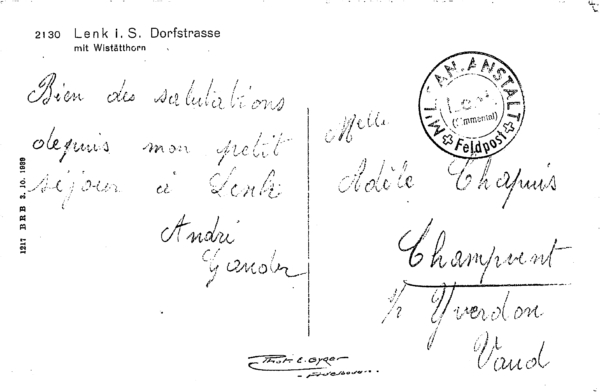 2130 Lenk i. S. Dorfstrasse
mit Wistätthorn
Bien des salutations
depuis mon petit
séjour à Lenk
André
Gander
1217 BRB 3. 10. 1939
MIL. SAN. ANSTALT
Lenk
(Simmental)
Feldpost
Melle
Adèle Chapuis
Champvent
s/ Yverdon
Vaud
Phot. E. Gyger